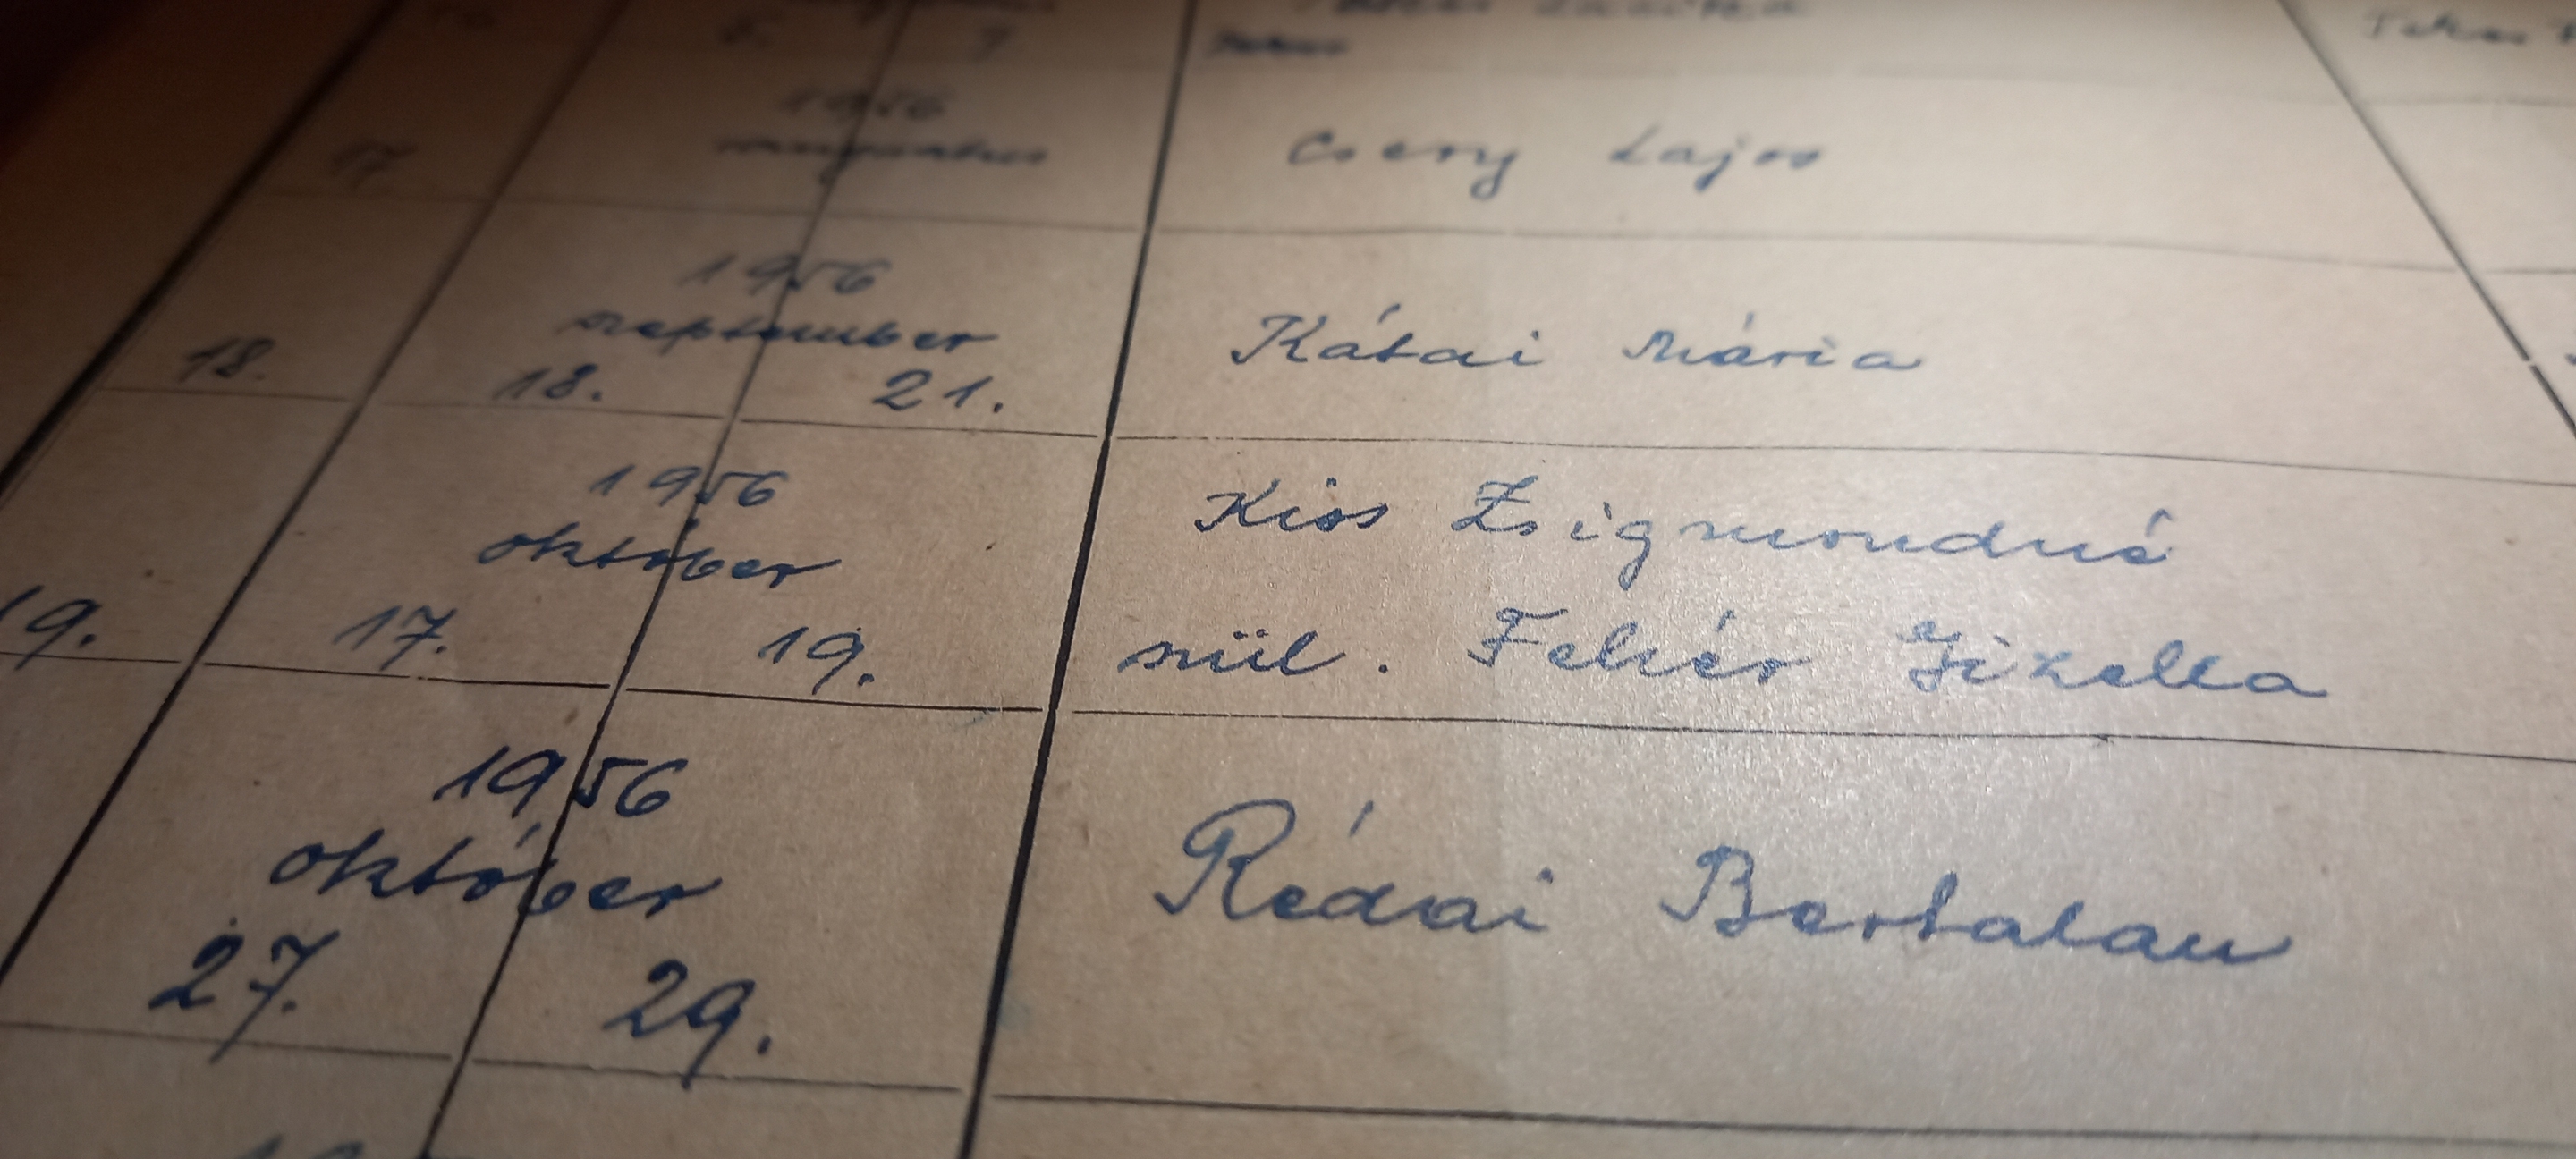 5. 7
1956
17. augusztus Csery Lajos
1956
szeptember
18. 18. 21. Kátai Mária
1956
október
19. 17. 19.
Kiss Zsigmondné
szül. Fehér Gizella
1956
október
27. 29.
Rédai Bertalan